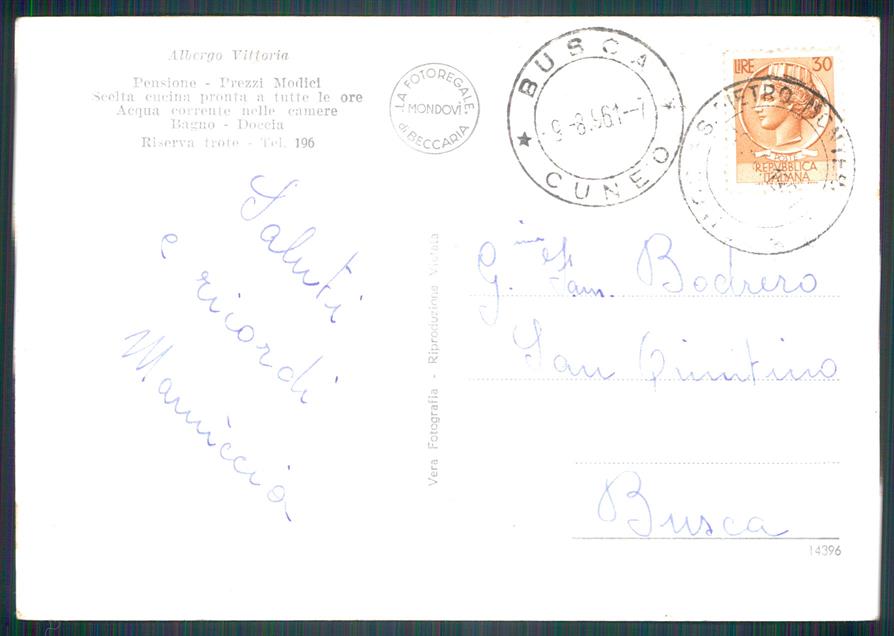 Albergo Vittoria
Pensione - Prezzi Modici
Scelta cucina pronta a tutte le ore
Acqua corrente nelle camere
Bagno - Doccia
Riserva trote - Tel. 196
LA FOTOREGALE
MONDOVÌ
di BECCARIA
BUSCA
9-8.961-7
CUNEO
LIRE 30
POSTE
REPVBBLICA
ITALIANA
S. PIETRO MONTER
Saluti
e ricordi
Mariuccia
Vera Fotografia - Riproduzione Vietata
G.ma Fam. Bodrero
San Quintino
Busca
14396